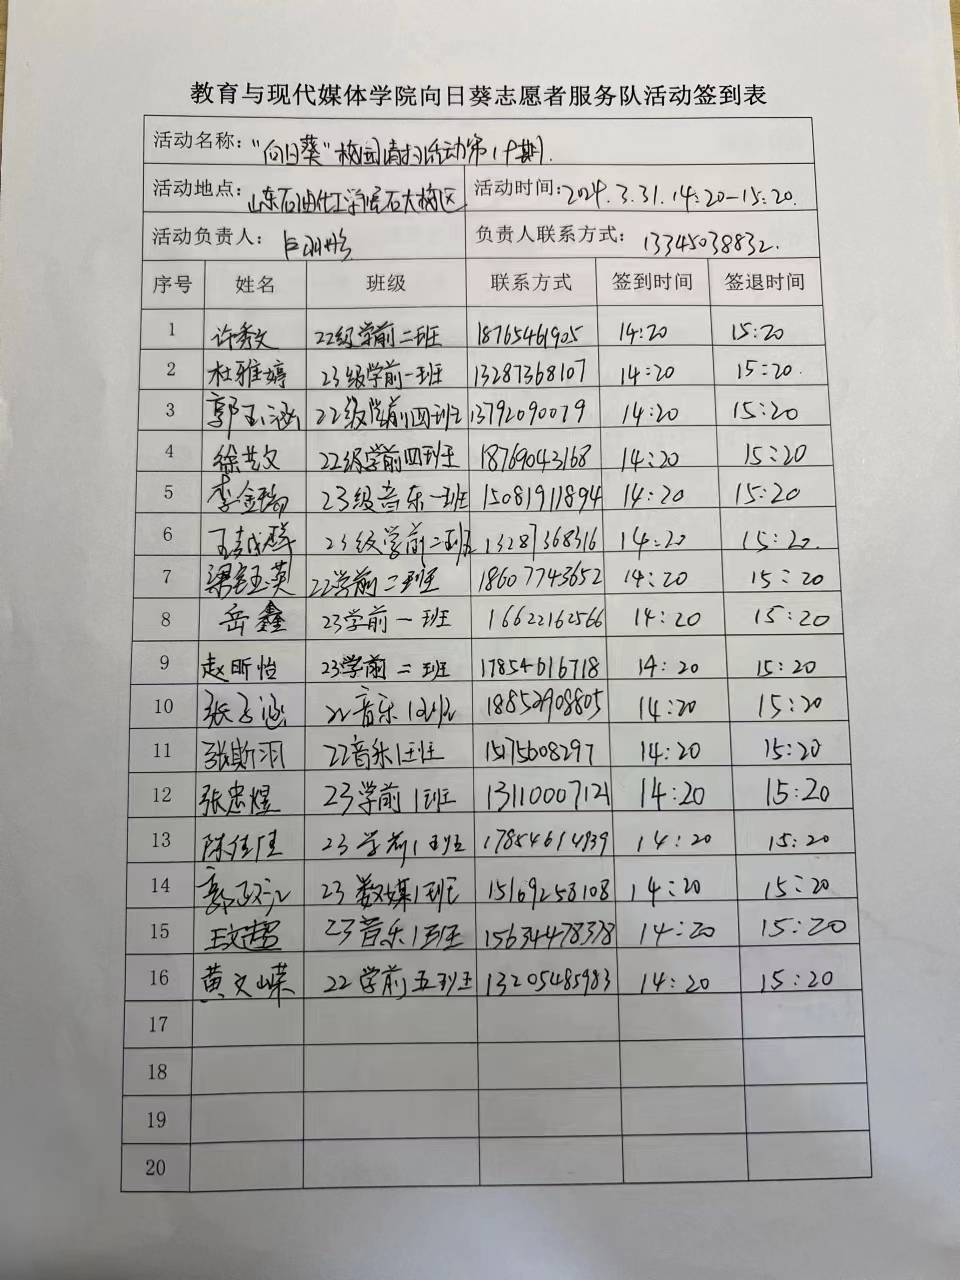 教育与现代媒体学院向日葵志愿者服务队活动签到表
活动名称："向日葵"校园清扫活动第19期.
活动地点：山东石油化工学院石大校区 活动时间：2024.3.31.14:20-15:20.
活动负责人： 负责人联系方式：13345038832.
序号 姓名 班级 联系方式 签到时间 签退时间
1 许秀文 22级学前二班 18765461905 14:20 15:20
2 杜雅婷 23级学前一班 13287368107 14:20 15:20.
3 郭玉涵 22级学前四班 13792090079 14:20 15:20
4 徐艺文 22级学前四班 18769043168 14:20 15:20
5 李金瑞 23级音乐一班 15081911894 14:20 15:20
6 23级学前二班 13287368316 14:20 15:20.
7 梁钰英 22学前二班 18607743652 14:20 15:20
8 岳鑫 23学前一班 16622162566 14:20 15:20
9 赵昕怡 23学前二班 17854616718 14:20 15:20
10 张子涵 22音乐1班 18852908805 14:20 15:20
11 张斯羽 22音乐1班 1575608297 14:20 15:20
12 张忠煜 23学前1班 13110007121 14:20 15:20
13 陈佳佳 23学前1班 17854614939 14:20 15:20
14 23数媒1班 15169258108 14:20 15:20
15 王文超 23音乐1班 15634478378 14:20 15:20
16 黄文嵘 22学前五班 13205485983 14:20 15:20
17
18
19
20